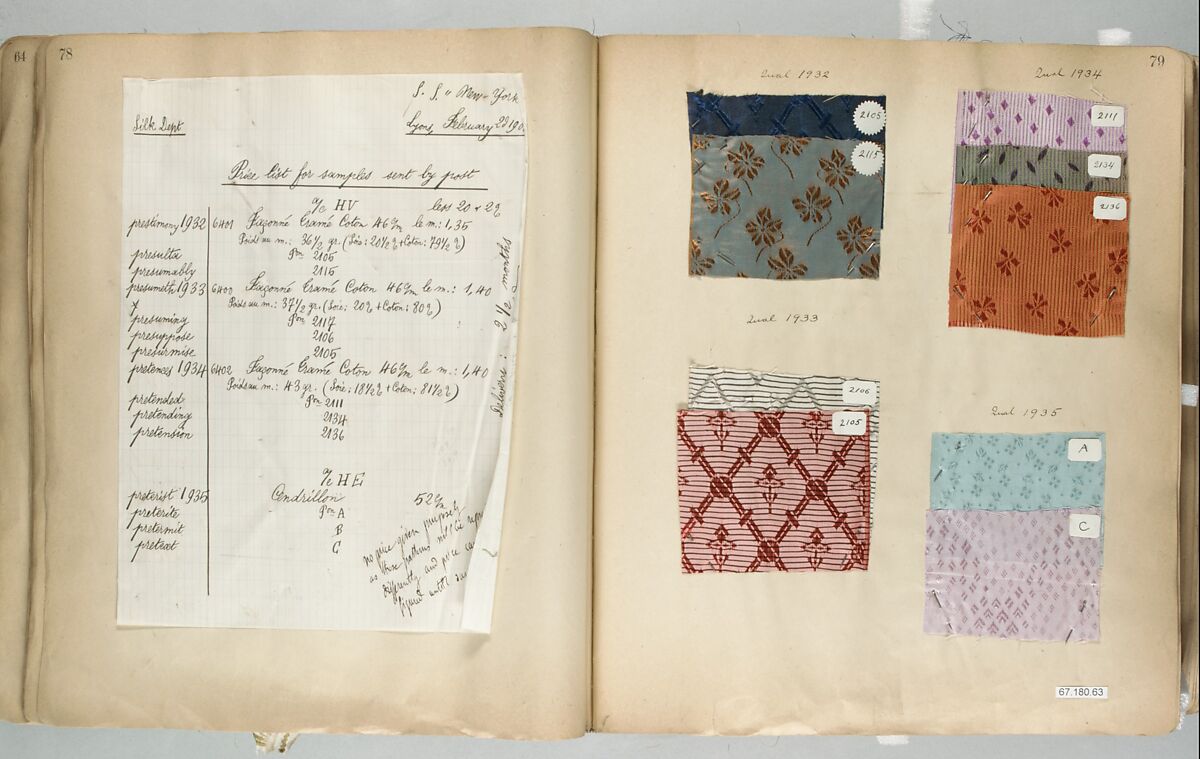 64
78
S. S. "New-York
Lyons, February 2d 190
Silk Dept
Price list for samples sent by post
HV less 20 + 2%
prestimony 1932 6401 Façonné Tramé Coton 46 c/m le m.: 1,35
Poids au m.: 36½ gr. (Soie: 20½% + Coton: 79½%)
presulta psn 2105
presumably 2115
presumeth 1933 6400 Façonné Tramé Coton 46 c/m le m.: 1,40
Poids au m.: 37½ gr. (Soie: 20% + Coton: 80%)
presuming psn 2117
presuppose 2106
presurmise 2105
pretences 1934 6402 Façonné Tramé Coton 46 c/m le m.: 1,40
Poids au m.: 43 gr. (Soie: 18½% + Coton: 81½%)
pretended psn 2111
pretending 2134
pretension 2136
HE
preterist 1935 Cendrillon 52 c/m
preterite psn A
pretermit B
pretext C
no price given purposely
as these patterns will be
differently and price can
figured until
Delivery: 2 ½ months
79
Qual 1932
2105
2115
Qual 1934
2111
2134
2136
Qual 1933
2106
2105
Qual 1935
A
C
67.180.63